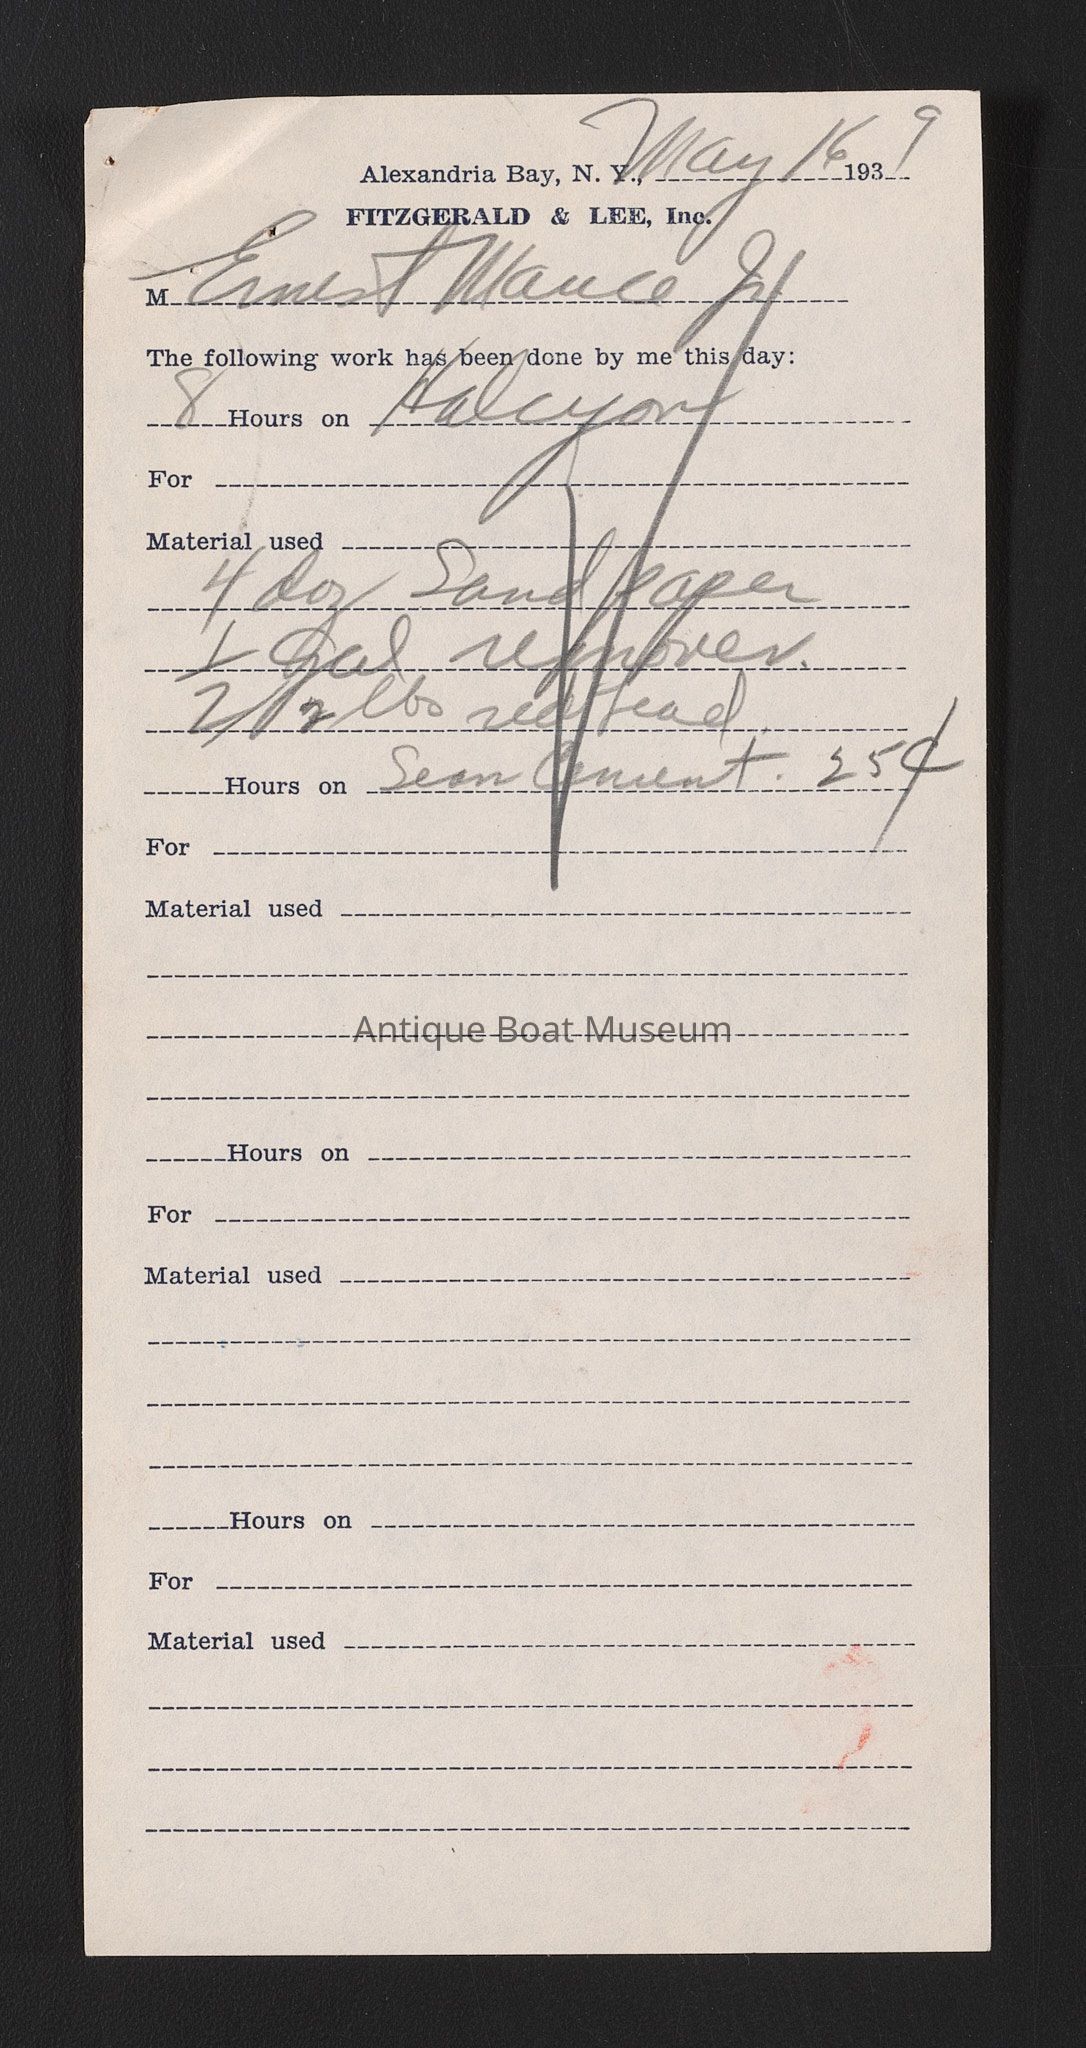 Alexandria Bay, N. Y., May 16 1939
FITZGERALD & LEE, Inc.
M Ernest Mance Jr
The following work has been done by me this day:
8 Hours on Halcyon
For
Material used
4 doz Sand paper
1 Gal remover.
2 1/2 lbs red lead
Hours on Seam Cement. 25¢
For
Material used
Antique Boat Museum
Hours on
For
Material used
Hours on
For
Material used